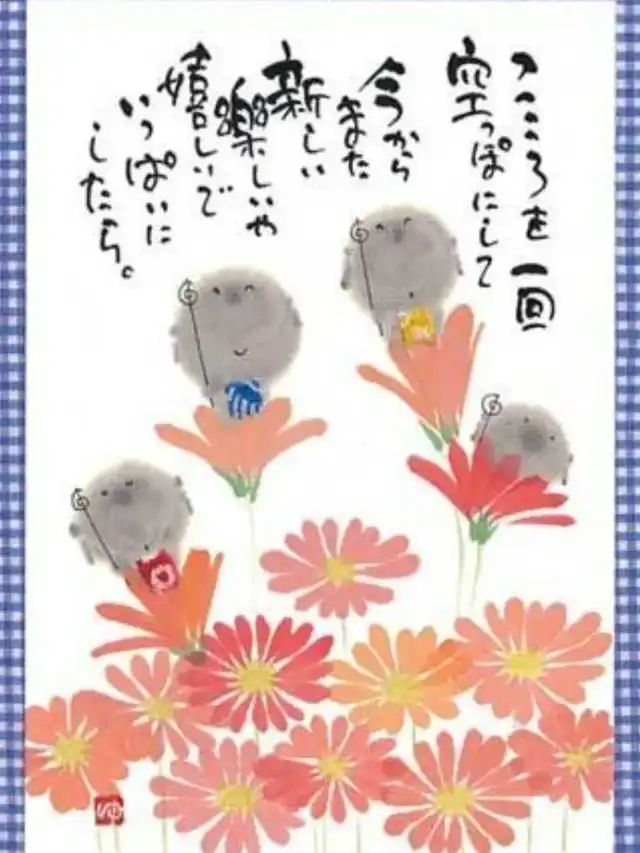 こころを一回
空っぽにして
今から
また
新しい
楽しいや
嬉しいで
いっぱいに
したら。
ゆ